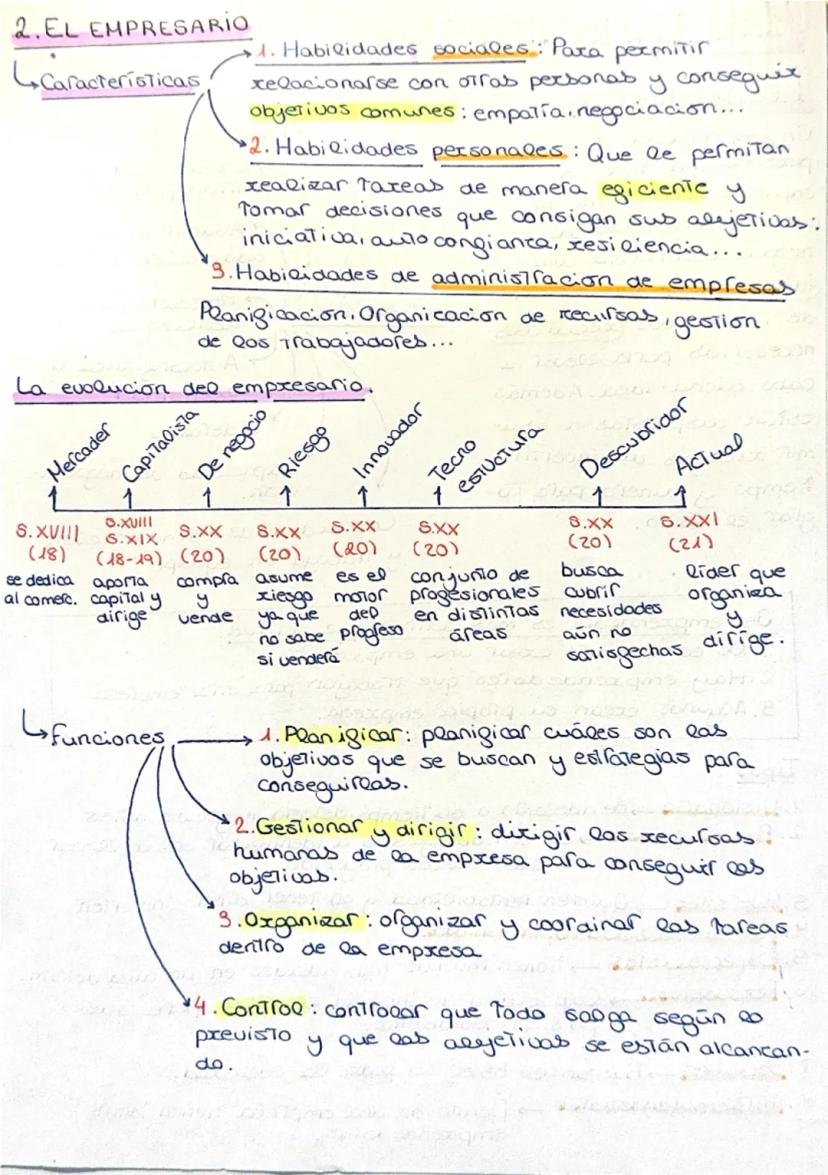 2. EL EMPRESARIO
Características
1. Habilidades sociales: Para permitir
relacionarse con otras personas y conseguir
objetivos comunes: empatía, negociación...
2. Habilidades personales: Que le permitan
realizar tareas de manera eficiente y
tomar decisiones que consigan sus objetivos:
iniciativa, autoconfianza, resiliencia...
3. Habilidades de administración de empresas
Planificación, Organización de recursos, gestion
de los trabajadores...
La evolución del empresario.
Mercader Capitalista De negocio Riesgo Innovador Tecno estructura Descubridor Actual
S.XVIII S.XVIII S.XX S.XX S.XX S.XX S.XX S.XXI
S.XIX
(18) (18-19) (20) (20) (20) (20) (20) (21)
se dedica aporta compra asume es el conjunto de busca líder que
al comerc. capital y y riesgo motor profesionales cubrir organiza
dirige vende ya que del en distintas necesidades y
no sabe progreso áreas aún no dirige.
si venderá satisfechas
Funciones
1. Planificar: planificar cuáles son los
objetivos que se buscan y estrategias para
conseguirlos.
2. Gestionar y dirigir: dirigir los recursos
humanos de la empresa para conseguir los
objetivos.
3. Organizar: organizar y coordinar las tareas
dentro de la empresa
4. Control: controlar que todo salga según lo
previsto y que los objetivos se están alcanzan-
do.